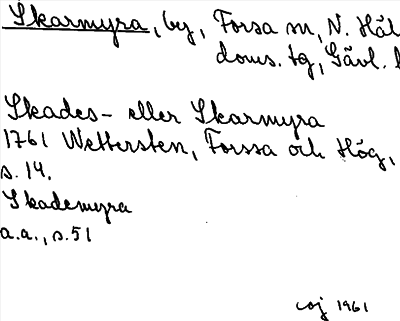 Skarmyra, by, Forsa sn, N. Häl
doms. tg, Gävl. l
Skades- eller Skarmyra
1761 Wettersten, Forssa och Hög,
s. 14.
Skademyra
a.a., s. 51
1961